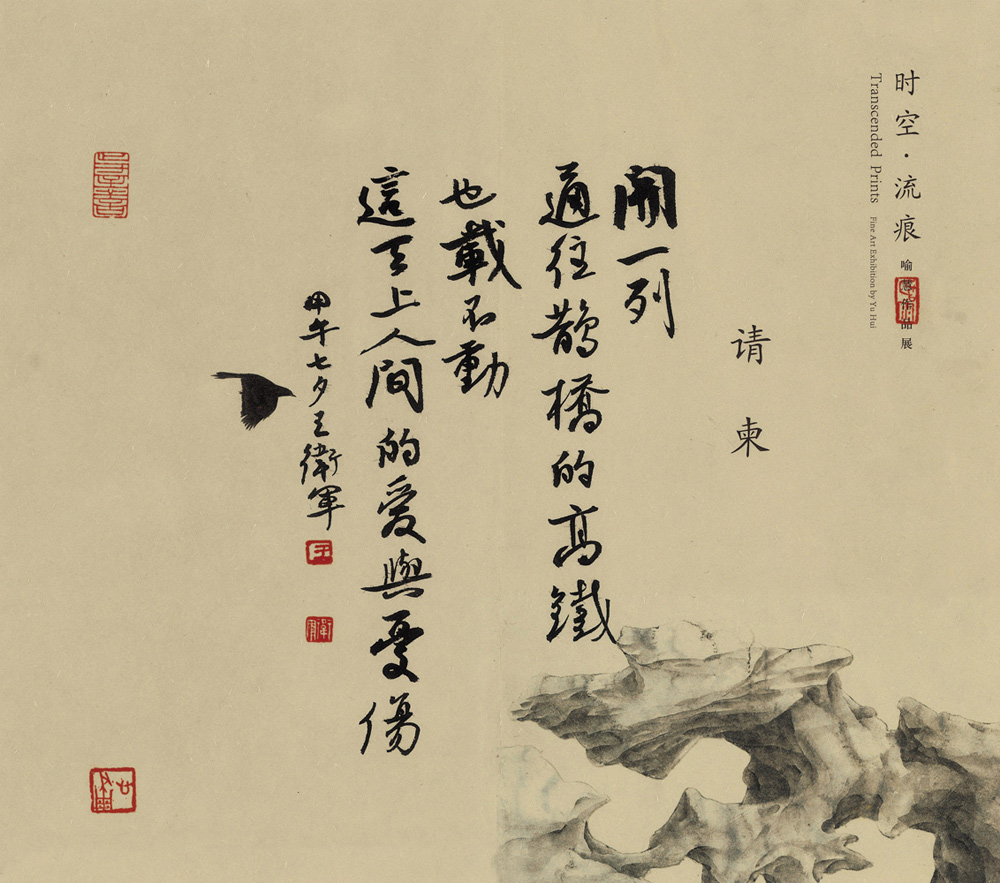 时空·流痕
喻慧作品展
Transcended Prints
Fine Art Exhibition by Yu Hui
请柬
開一列
通往鵲橋的高鐵
也載不動
這天上人間的愛與憂傷
甲午七夕王衛軍